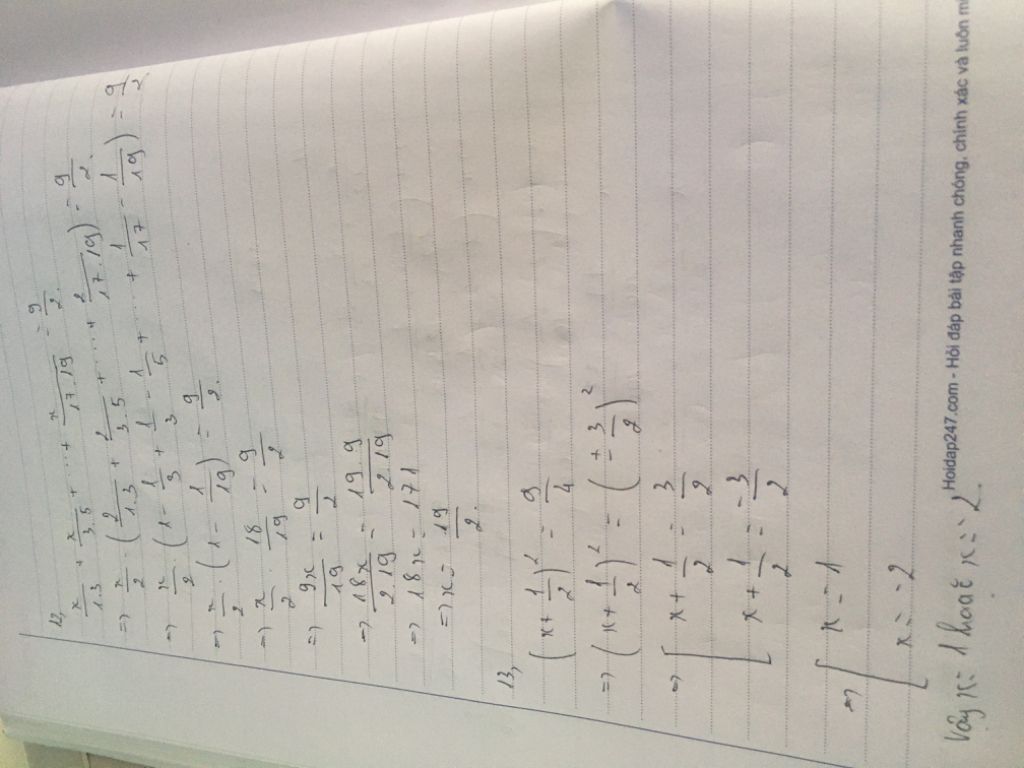 12,
x/1.3 + x/3.5 + ... + x/17.19 = 9/2.
=> x/2 . (2/1.3 + 2/3.5 + ... + 2/17.19) = 9/2.
=> x/2 . (1 - 1/3 + 1/3 - 1/5 + ... + 1/17 - 1/19) = 9/2.
=> x/2 . (1 - 1/19) = 9/2.
=> x/2 . 18/19 = 9/2
=> 9x/19 = 9/2
=> 18x/2.19 = 19.9/2.19
=> 18x = 171
=> x = 19/2.
13,
(x + 1/2)² = 9/4
=> (x + 1/2)² = (± 3/2)²
=> [ x + 1/2 = 3/2
[ x + 1/2 = -3/2
=> [ x = 1
[ x = -2
Vậy x = 1 hoặc x = -2.
Hoidap247.com - Hỏi đáp bài tập nhanh chóng, chính xác và luôn mi